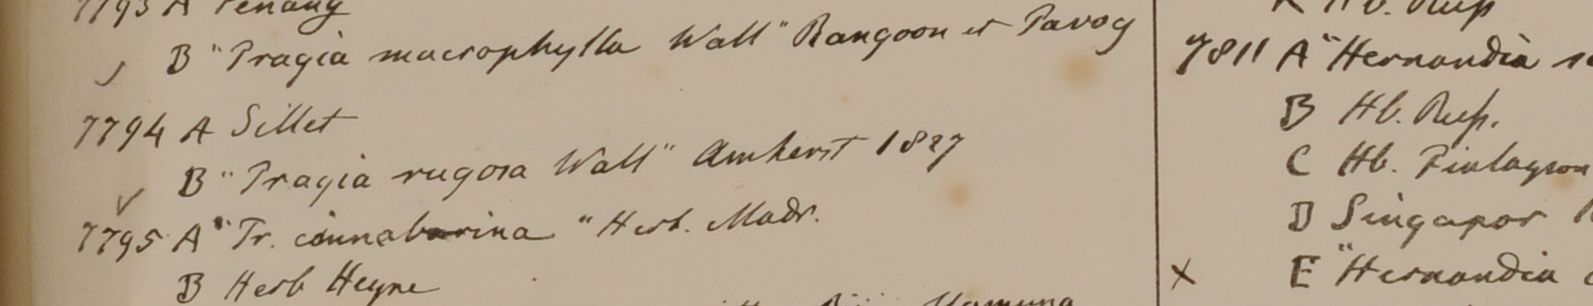 7793 A Penang
B "Tragia macrophylla Wall" Rangoon et Tavoy
7794 A Sillet
B "Tragia rugosa Wall" Amherst 1827
7795 A "Tr. cannabarina" Herb. Madr.
B Herb Heyne
Hb. Rup
7811 A "Hernandia
B Hb. Rup.
C Hb. Finlayson
D Singapor
E "Hernandia